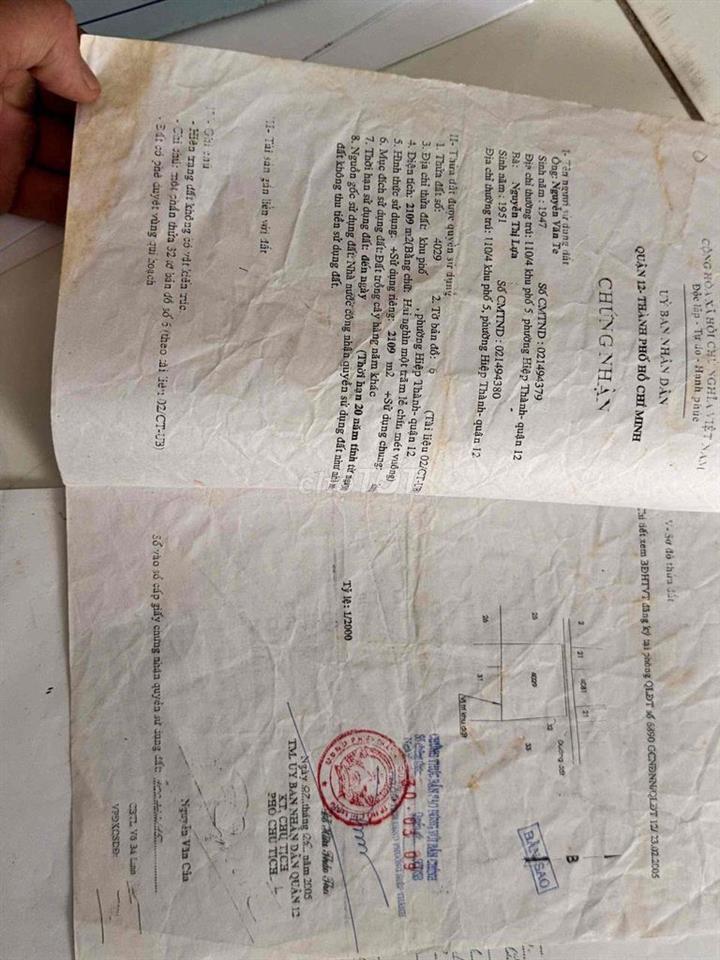 CỘNG HÒA XÃ HỘI CHỦ NGHĨA VIỆT NAM
Độc lập - Tự do - Hạnh phúc
UỶ BAN NHÂN DÂN
QUẬN 12- THÀNH PHỐ HỒ CHÍ MINH
CHỨNG NHẬN
I- Tên người sử dụng đất
Ông: Nguyễn Văn Te
Sinh năm : 1947 Số CMTND : 021494379
Địa chỉ thường trú: 110/4 khu phố 5, phường Hiệp Thành- quận 12
Bà: Nguyễn Thị Lựa
Sinh năm : 1951 Số CMTND : 021494380
Địa chỉ thường trú: 110/4 khu phố 5, phường Hiệp Thành- quận 12
II- Thửa đất được quyền sử dụng
1. Thửa đất số: 4029 2. Tờ bản đồ: 6 (Tài liệu 02/CT-UB
3. Địa chỉ thửa đất: khu phố , phường Hiệp Thành- quận 12
4. Diện tích: 2109 m2/(Bằng chữ: Hai nghìn một trăm lẻ chín mét vuông)
5. Hình thức sử dụng: +Sử dụng riêng: 2109 m2 +Sử dụng chung:
6. Mục đích sử dụng đất: Đất trồng cây hàng năm khác
7. Thời hạn sử dụng đất: đến ngày (Thời hạn 20 năm tính từ
8. Nguồn gốc sử dụng đất: Nhà nước công nhận quyền sử dụng đất như
đất không thu tiền sử dụng đất.
III- Tài sản gắn liền với đất
/
IV- Ghi chú
- Hiện trạng đất không có vật kiến trúc
- Ghi chú: một phần thửa 32 tờ bản đồ số 6 (theo tài liệu 02/CT-UB)
- Đất có phê duyệt vùng qui hoạch
V- Sơ đồ thửa đất
Chi tiết xem BĐHTVT đăng ký tại phòng QLĐT số 6890 GCNĐNN/QLĐT 12/23.02.2005
B
2
21
4081
21
Đường đất
25
4029
32
33
26
31
Vị trí khu đất
Tỷ lệ: 1/2000
BẢN SAO
30 03 09
Ngày 02 tháng 06 năm 2005
TM. UỶ BAN NHÂN DÂN QUẬN 12
KT. CHỦ TỊCH
PHÓ CHỦ TỊCH
Nguyễn Văn Của
Số vào sổ cấp giấy chứng nhận quyền sử dụng đất: